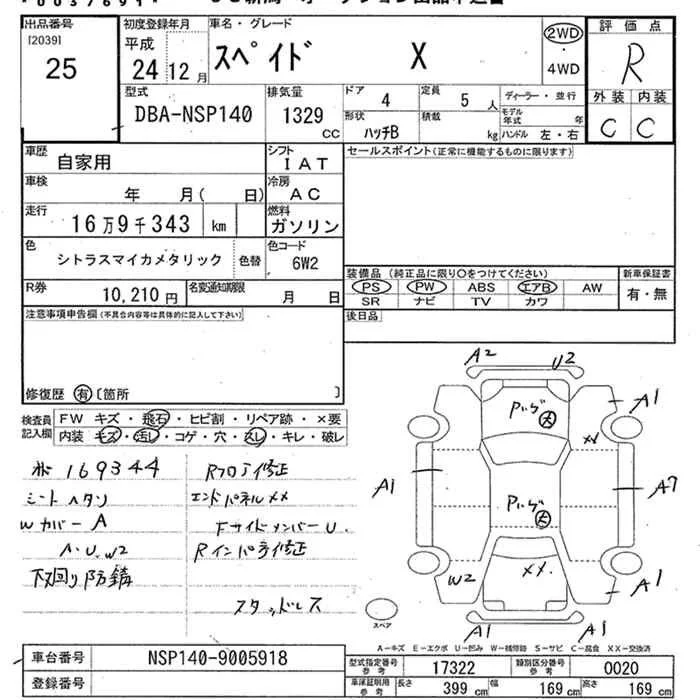 出品番号
[2039]
25
初度登録年月
平成
24 12月
車名・グレード
スペイド X
2WD
・
4WD
評価点
R
外装 内装
C C
型式
DBA-NSP140
排気量
1329
CC
ドア
4
定員
5人
ディーラー・並行
形状
ハッチB
積載
kg
モデル年式 年
ハンドル 左・右
車歴
自家用
シフト
IAT
セールスポイント(正常に機能するものに限ります)
車検
年 月( 日)
冷房
AC
走行
16万9千343 km
燃料
ガソリン
色
シトラスマイカメタリック
色替
色コード
6W2
装備品(純正品に限り○をつけてください)
新車保証書
PS PW ABS エアB AW
有・無
SR ナビ TV カワ
R券
10,210円
名変通知期限
月 日
注意事項申告欄(不具合内容等は具体的に記入して下さい)
後日品
修復歴 有 〔箇所 〕
検査員記入欄
FW キズ・飛石・ヒビ割・リペア跡・×要
内装・キズ・汚レ・コゲ・穴・スレ・キレ・破レ
169344
シートヘタリ
Wカバー A
A・U・W2
下回り防錆
Rフロア修正
エンドパネルXX
FサイドメンバーU
スタッドレス
A2
U2
A1
XX
A1
A7
W2
XX
A1
A1
A1
スペア
A－キズ E－エクボ U－凹み W－補修跡 S－サビ C－腐食 XX－交換済
車台番号
NSP140-9005918
登録番号
型式指定番号参考
17322
類別区分番号参考
0020
車庫証明用参考
長さ 399 cm 幅 169 cm 高さ 169 cm